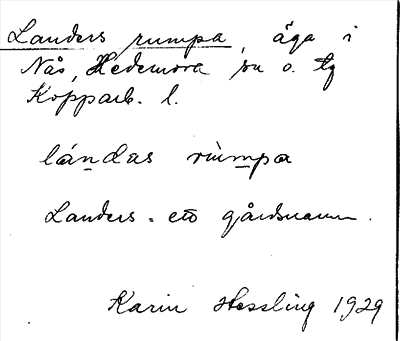 Landers rumpa, äga i
Nås, Hedemora sn o. tg
Kopparb. l.
lándas rùmpa
Landers = ett gårdsnamn.
Karin Hessling 1929